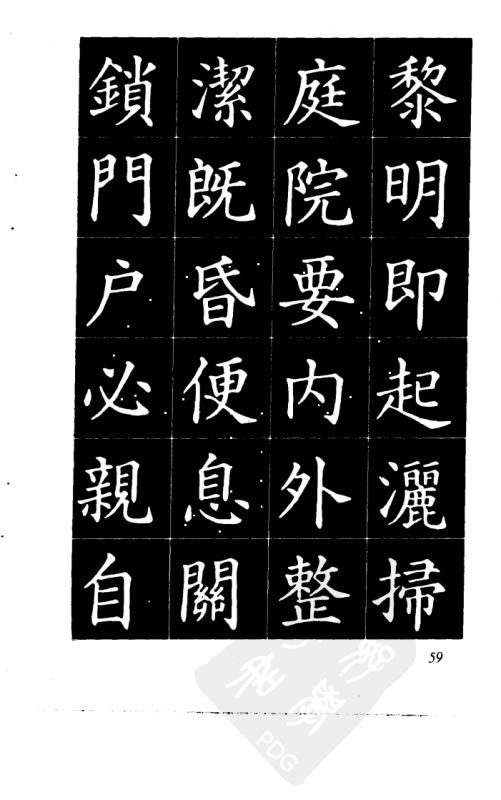 黎明即起灑掃
庭院要内外整
潔既昏便息關
鎖門户必親自
59
PDG